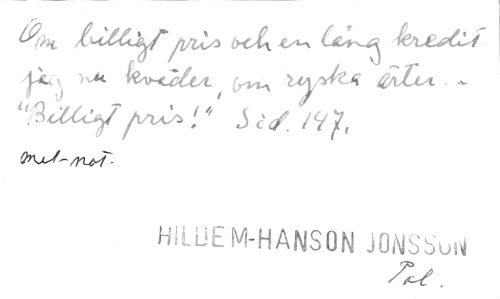 Om billigt pris och en lång kredit
jag nu kväder, om ryska ärter. -
"Billigt pris!" Sid. 147.
mel-not.
HILDEM-HANSON JONSSON
Pol.